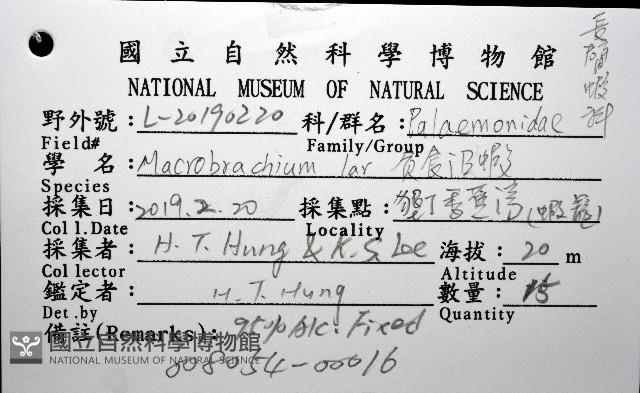 長臂蝦科
國立自然科學博物館
NATIONAL MUSEUM OF NATURAL SCIENCE
野外號：L-20190220 科/群名：Palaemonidae
Field# Family/Group
學 名：Macrobrachium lar 貪食沼蝦
Species
採集日：2019.2.20 採集點：墾丁香蕉灣(蝦籠)
Coll.Date Locality
採集者：H. T. Hung & K. S. Lee 海拔：20 m
Collector Altitude
鑑定者：H. T. Hung 數量：15
Det.by Quantity
備註(Remarks)：95% Alc. Fixed
008054-00016
國立自然科學博物館
NATIONAL MUSEUM OF NATURAL SCIENCE